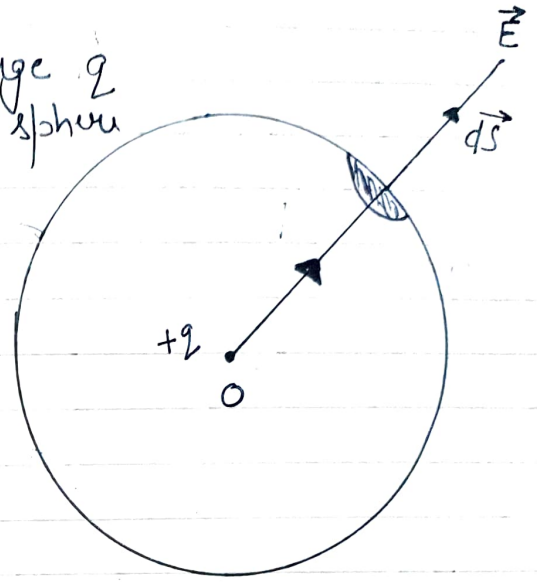 q
sphere
E⃗
dS⃗
+q
O